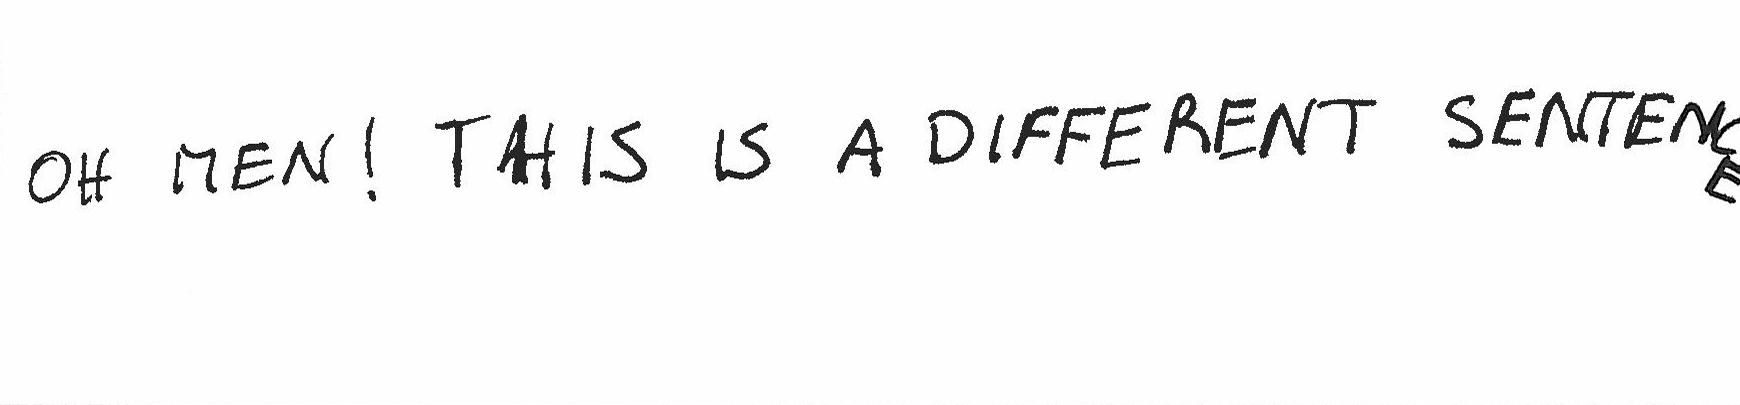 OH MEN! THIS IS A DIFFERENT SENTENCE